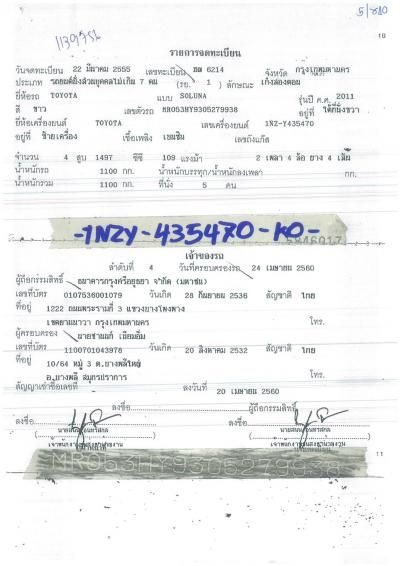 5/ชอบ
10
รายการจดทะเบียน
วันจดทะเบียน 22 มีนาคม 2555 เลขทะเบียน 6214 จังหวัด กรุงเทพมหานคร
ประเภท รถยนต์นั่งส่วนบุคคลไม่เกิน 7 คน (รย. 1) ลักษณะ เก๋งสองตอน
ยี่ห้อรถ TOYOTA แบบ SOLUNA รุ่นปี ค.ศ. 2011
สี ขาว เลขตัวรถ MR053HY9305279938 อยู่ที่
ยี่ห้อเครื่องยนต์ TOYOTA เลขเครื่องยนต์ 1NZ-Y435470
อยู่ที่ ซ้ายเครื่อง เชื้อเพลิง เบนซิน เลขถังแก๊ส
จำนวน 4 สูบ 1497 ซีซี 109 แรงม้า 2 เพลา 4 ล้อ ยาง 4 เส้น
น้ำหนักรถ 1100 กก. น้ำหนักบรรทุก/น้ำหนักลงเพลา กก.
น้ำหนักรวม 1100 กก. ที่นั่ง 5 คน
-1NZY-435470-KO-
เจ้าของรถ
ลำดับที่ 4 วันที่ครอบครองรถ 24 เมษายน 2560
ผู้ถือกรรมสิทธิ์ ธนาคารกรุงศรีอยุธยา จำกัด (มหาชน)
เลขที่บัตร 0107536001079 วันเกิด 28 กันยายน 2536 สัญชาติ ไทย
ที่อยู่ 1222 ถนนพระรามที่ 3 แขวงบางโพงพาง
เขตยานนาวา กรุงเทพมหานคร โทร.
ผู้ครอบครอง
เลขที่บัตร 1100701043978 วันเกิด 20 สิงหาคม 2532 สัญชาติ ไทย
ที่อยู่ 10/64 หมู่ 3 ต.บางพลีใหญ่
อ.บางพลี สมุทรปราการ โทร.
สัญญาเช่าซื้อเลขที่ - ลงวันที่ 20 เมษายน 2560
ลงชื่อ ผู้ถือกรรมสิทธิ์
ลงชื่อ ลงชื่อ
11